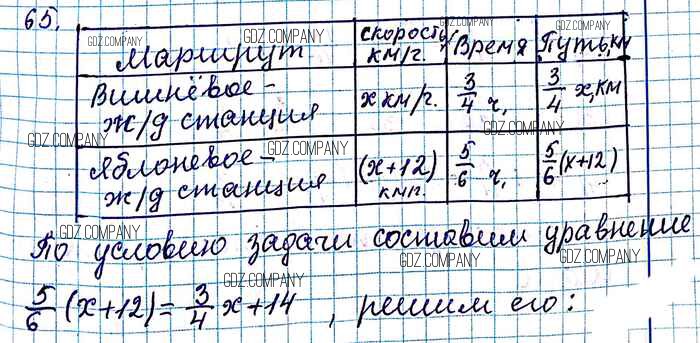 65.
GDZ.COMPANY GDZ.COMPANY GDZ.COMPANY GDZ.COMPANY
Маршрут | скорость, км/г. | Время | Путь, км
GDZ.COMPANY GDZ.COMPANY
Вишнёвое - ж/д станция | x км/г. | 3/4 ч, | 3/4 x, км
GDZ.COMPANY GDZ.COMPANY GDZ.COMPANY
Яблоневое - ж/д станция | (x+12) км/г. | 5/6 ч, | 5/6 (x+12)
GDZ.COMPANY GDZ.COMPANY
По условию задачи составим уравнение
GDZ.COMPANY GDZ.COMPANY GDZ.COMPANY
5/6 (x+12) = 3/4 x + 14, решим его: